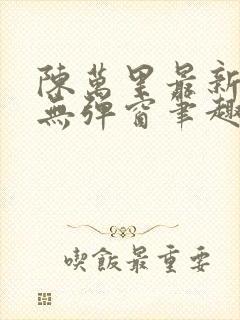 陳萬里最新
無彈窗筆趣
喫飯最重要